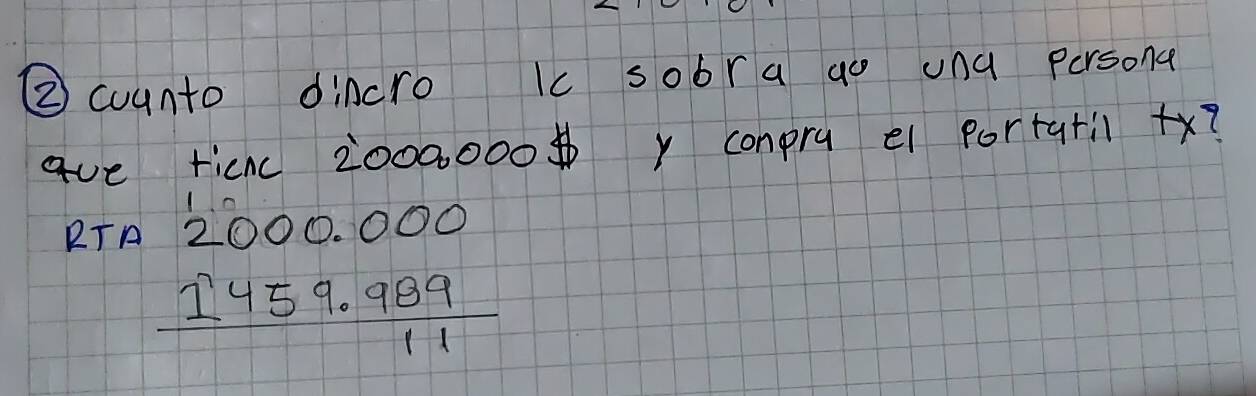 ② cuanto dinero le sobra ao una persona
que tiene 2000,000$ y conpra el portatil tx?
RTA 2000.000
1459.989
11